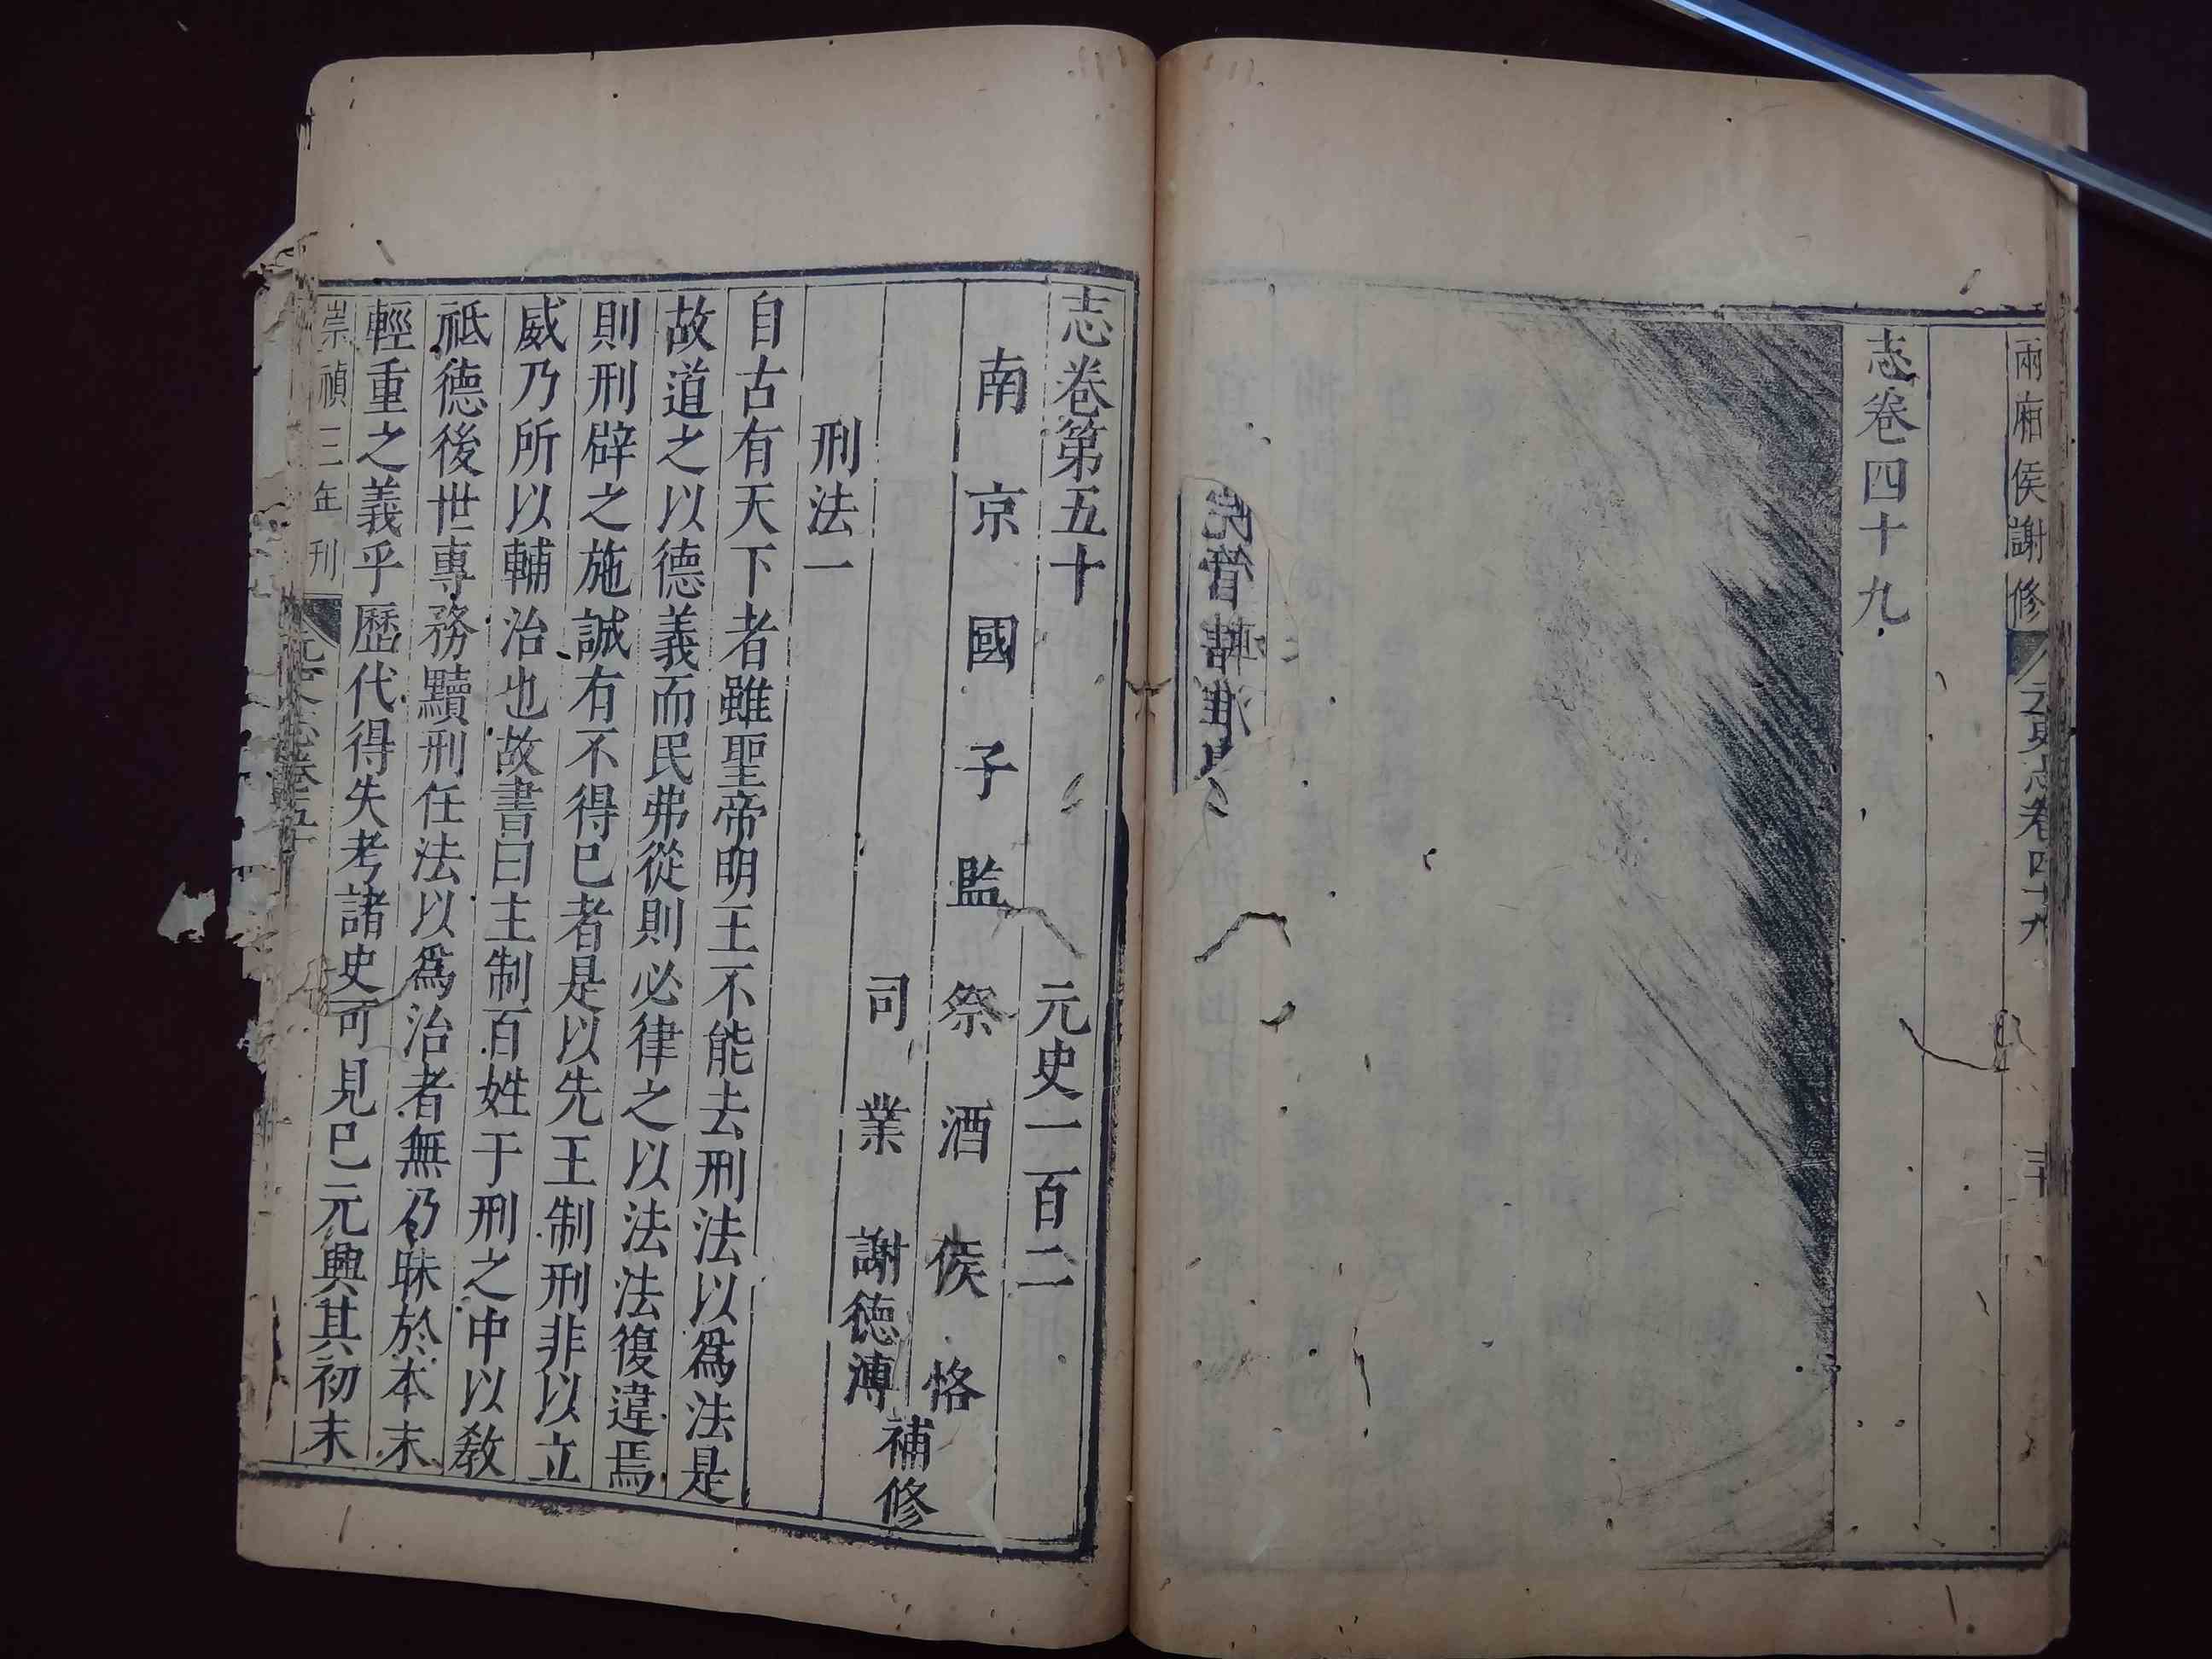 兩廂侯謝修
元史志卷四十九
三十
志卷四十九
志卷第五十 元史一百二
南京國子監祭酒侯恪
司業謝德溥
補修
刑法一
自古有天下者雖聖帝明王不能去刑法以爲法是
故道之以德義而民弗從則必律之以法法復違焉
則刑辟之施誠有不得已者是以先王制刑非以立
威乃所以輔治也故書曰主制百姓于刑之中以教
祗德後世專務黷刑任法以爲治者無乃昧於本末
輕重之義乎歷代得失考諸史可見已元興其初末
崇禎三年刊
元史志卷五十